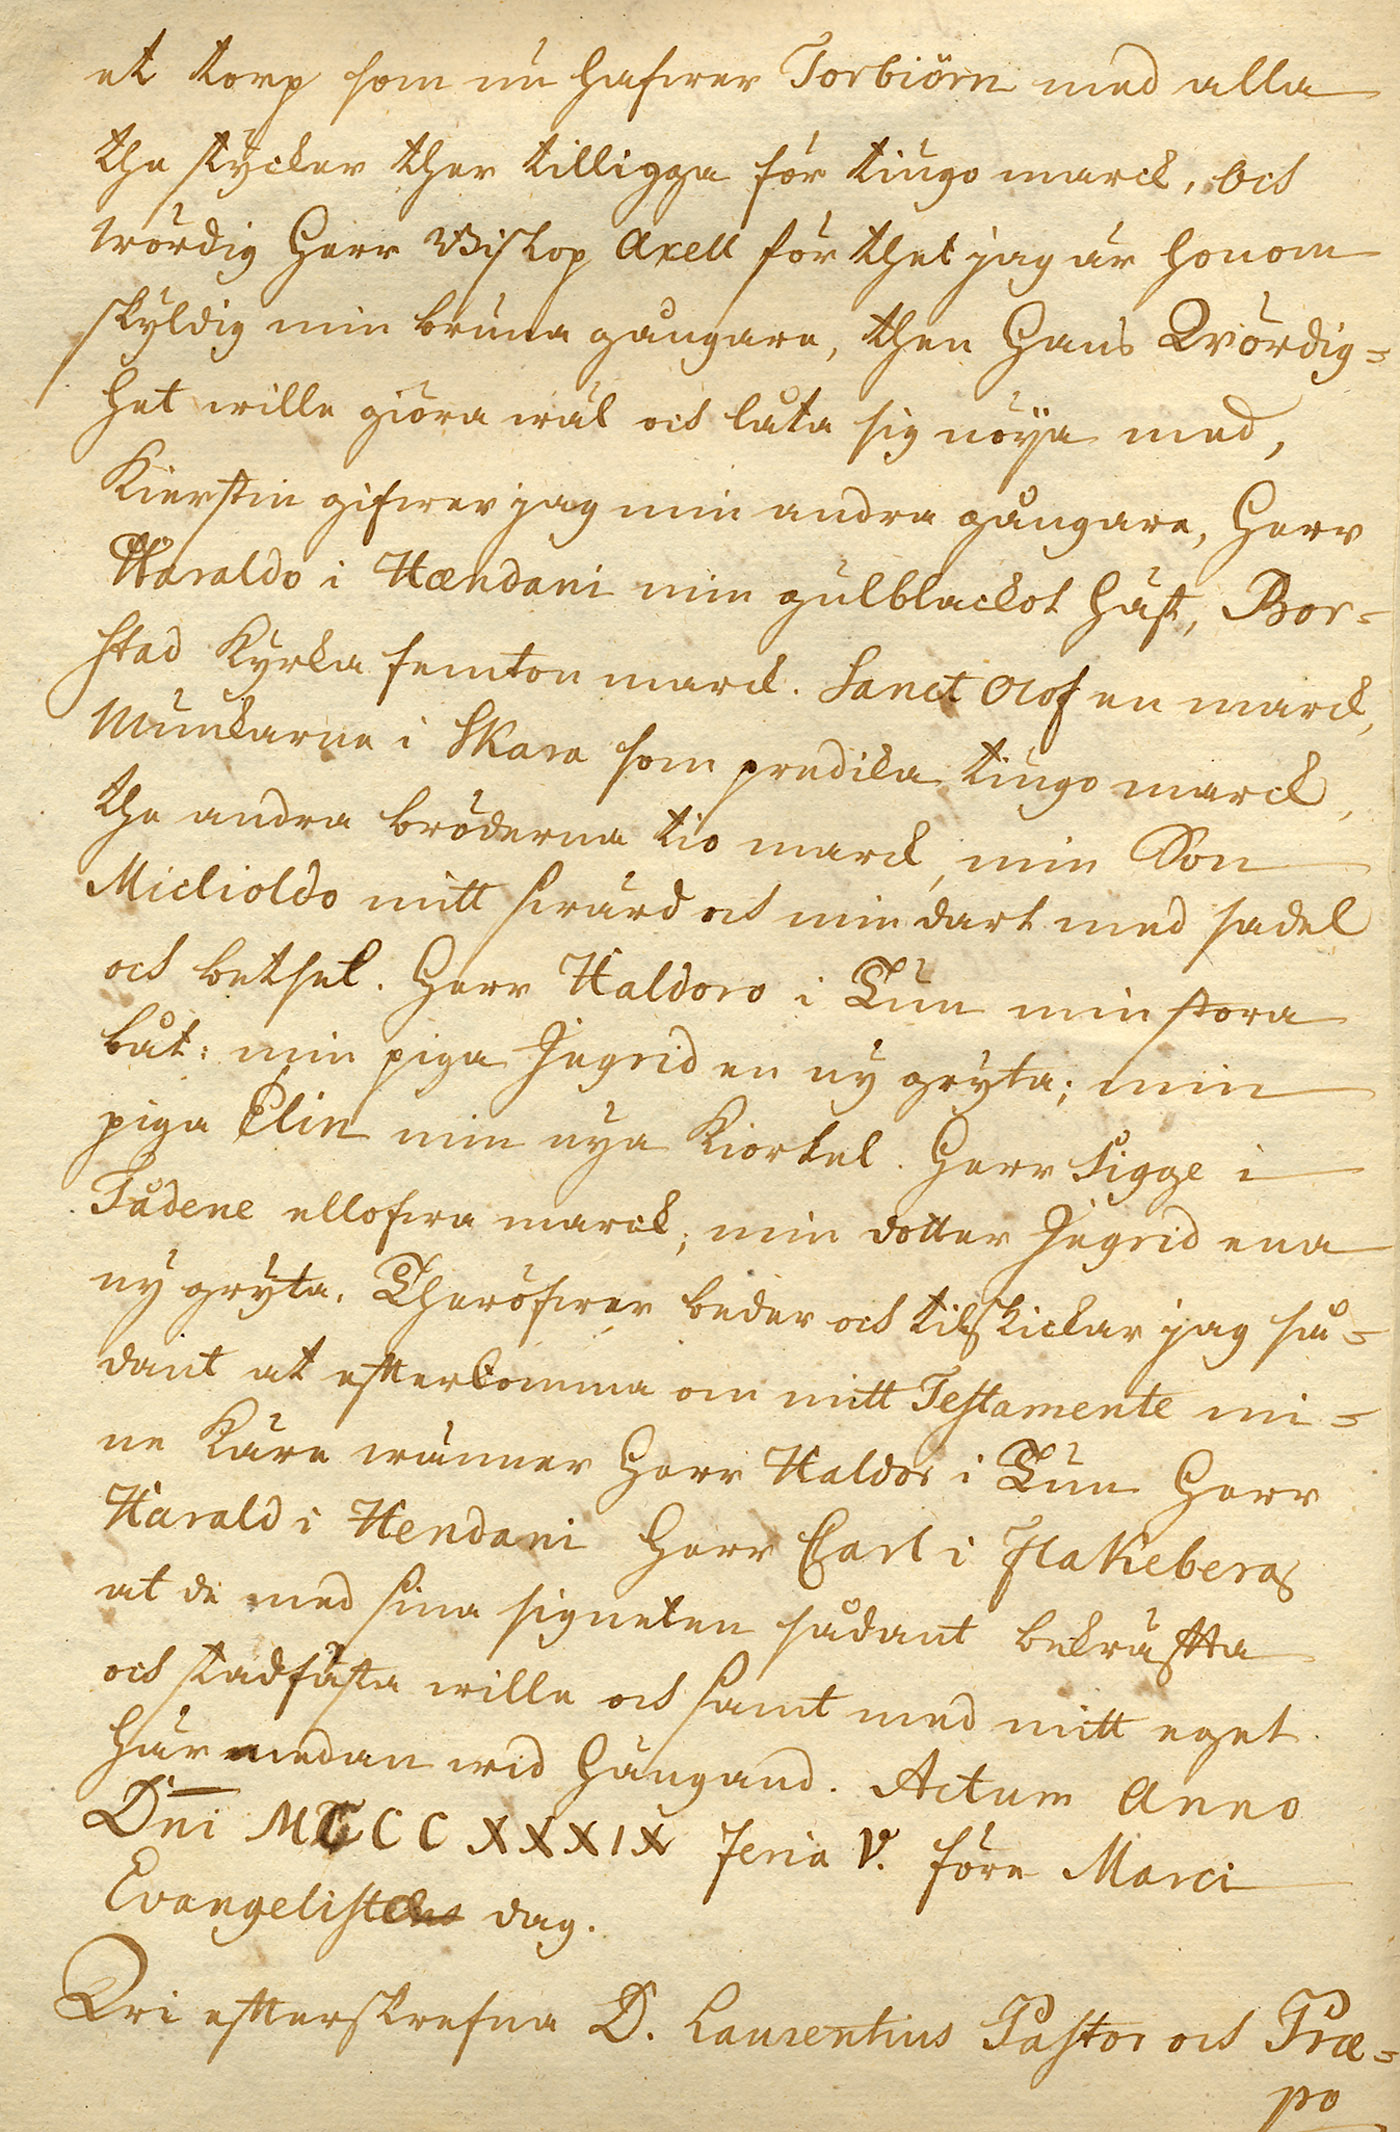 et torp som nu hafwer Torbiörn med alla
the stycker ther tilligga för tiugo marck, och
wördig Herr Biskop Axell för thet jag är honom
skyldig min bruna gångare, then Hans Wördig=
het wille giöra wäl och låta sig nöija med,
Kierstin gifwer jag min andra gångare, Herr
Haraldo i Hændani min gulblackot häst, Bor=
stad Kyrka femton marck. Sanct Olof en marck,
Munckarne i Skara som predika tiugo marck,
the andra bröderna tio marck, min Son
Miclioldo mitt swärd och min dart med sadel
och betsel. Herr Haldoro i Tun min stora
båt: min piga Ingrid en ny gryta; min
piga Elin min nya Kiortel. Herr Sigge i
Tådene ellofwa marck; min dotter Ingrid ena
ny gryta. Theröfwer beder och tilskickar jag så=
dant at efterkomma om mitt Testamente mi=
ne Käre wänner Herr Haldor i Tun Herr
Harald i Hendani Herr Carl i Flakeberg
at de med sina signeten sådant bekräfta
och stadfästa wille och samt med mitt eget
här nedan wid hängand. Actum Anno
Dni MCCCXXXIX Feria V. före Marci
Evangelistens dag.
Wi efterskrefna D. Laurentius Pastor och Præ=
po